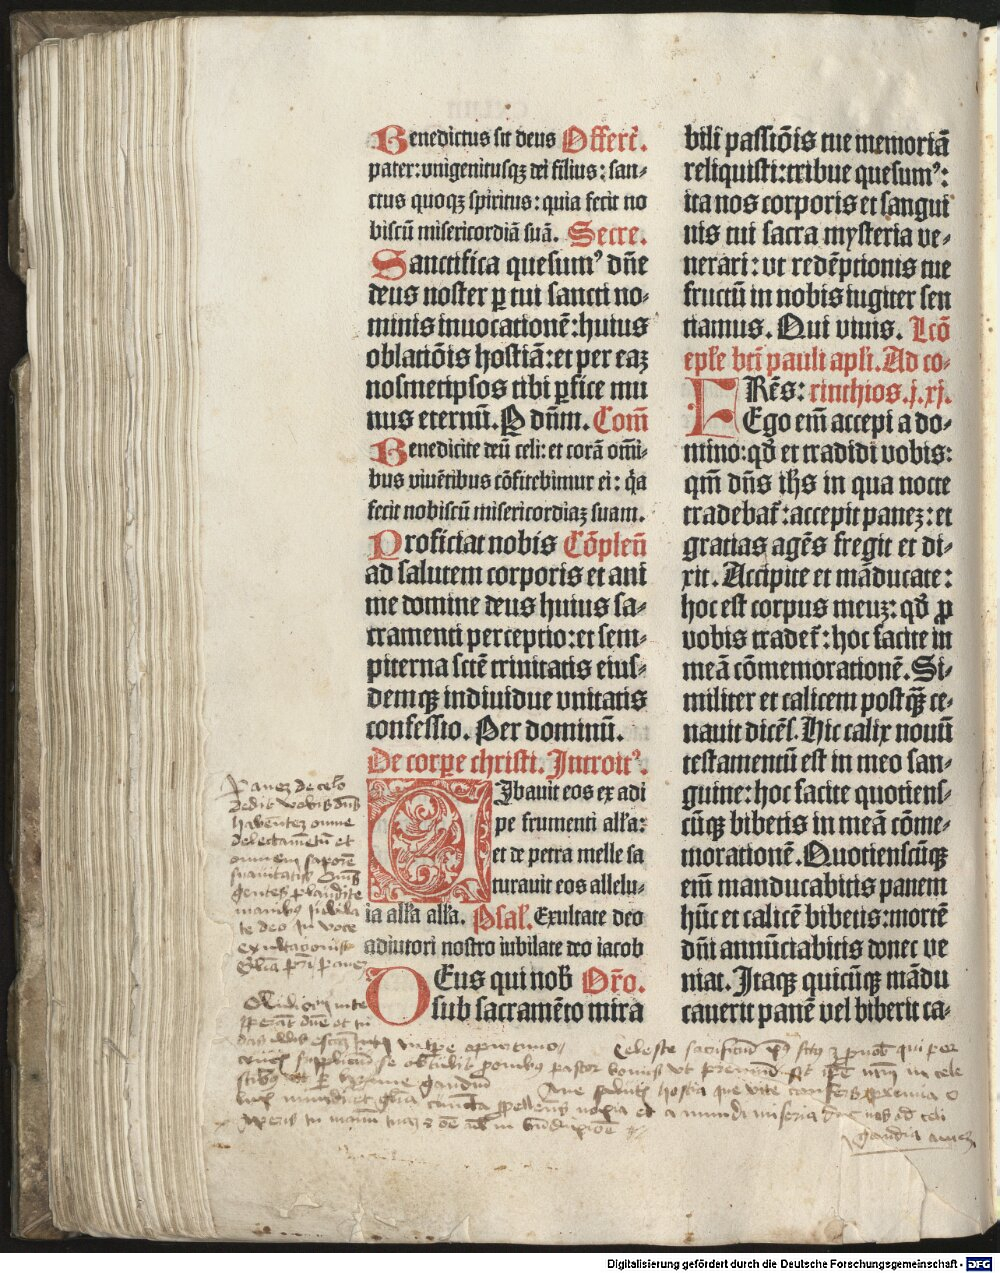 Benedictus sit deus Offert̄.
pater:vnigenitusqȝ dei filius:san⸗
ctus quoqȝ spiritus:quia fecit no
biscū misericordiā suā. Secre.
Sanctifica quesumꝰ dn̄e
deus noster ꝑ tui sancti no⸗
minis inuocationē:huius
oblatiōis hostiā:et per eaȝ
nosmetipsos tibi ꝑfice mu
nus eternū. P dn̄m. Com̄
Benedicite deū celi:et corā om̄i⸗
bus viuētibus cōfitebimur ei:q̄a
fecit nobiscū misericordiaȝ suam.
Proficiat nobis Cōplen̄
ad salutem corporis et ani
me domine deus huius sa⸗
cramenti perceptio:et sem⸗
piterna sctē trinitatis eius⸗
demqȝ indiuidue vnitatis
confessio. Per dominū.
De corpe christi. Introitꝰ.
CIbauit eos ex adi
pe frumenti alla:
et de petra melle sa
turauit eos allelu⸗
ia alla alla. Psal. Exultate deo
adiutori nostro iubilate deo iacob
DEus qui nob Or̄o.
sub sacramēto mira
bili passiōis tue memoriā
reliquisti:tribue quesumꝰ:
ita nos corporis et sangui
nis tui sacra mysteria ve⸗
nerari:vt redēptionis tue
fructū in nobis iugiter sen
tiamus. Qui viuis. Lcō
epl̄e bt̄i pauli apl̄i. Ad co⸗
FRēs: rinthios.j.xj.
Ego em̄ accepi a do⸗
mino:qd̄ et tradidi vobis:
qm̄ dn̄s ih̄s in qua nocte
tradebat̄:accepit paneȝ:et
gratias agēs fregit et di⸗
xit. Accipite et māducate:
hoc est corpus meuȝ:qd̄ ꝓ
vobis tradet̄:hoc facite in
meā cōmemorationē. Si⸗
militer et calicem postq̄ȝ ce⸗
nauit dicēs. Hic calix nouū
testamentū est in meo san⸗
guine:hoc facite quotiens⸗
cūqȝ bibetis in meā cōme⸗
morationē. Quotienscūqȝ
em̄ manducabitis panem
hūc et calicē bibetis:mortē
dn̄i annūciabitis donec ve
niat. Itaqȝ quicūqȝ mādu
cauerit panē vel biberit ca⸗
Panez de celo
dedit vobis dn̄s
habentez omne
delectamētū et
omnem saporē
suauitatis Om̄s
gentes plaudite
manibus iubila
te deo in voce
exultationis
Gloria pr̄i
Celeste sacrificiū
pastor bonus
gaudia
Digitalisierung gefördert durch die Deutsche Forschungsgemeinschaft - DFG